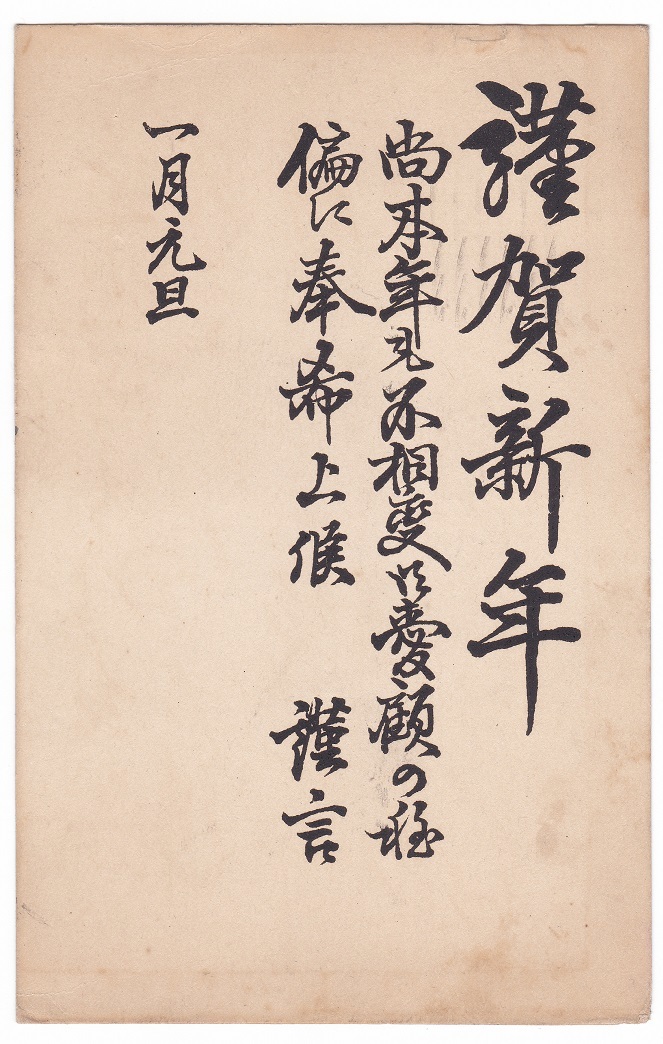 謹賀新年
尚本年も不相変御愛顧の程
偏に奉希上候 謹言
一月元旦